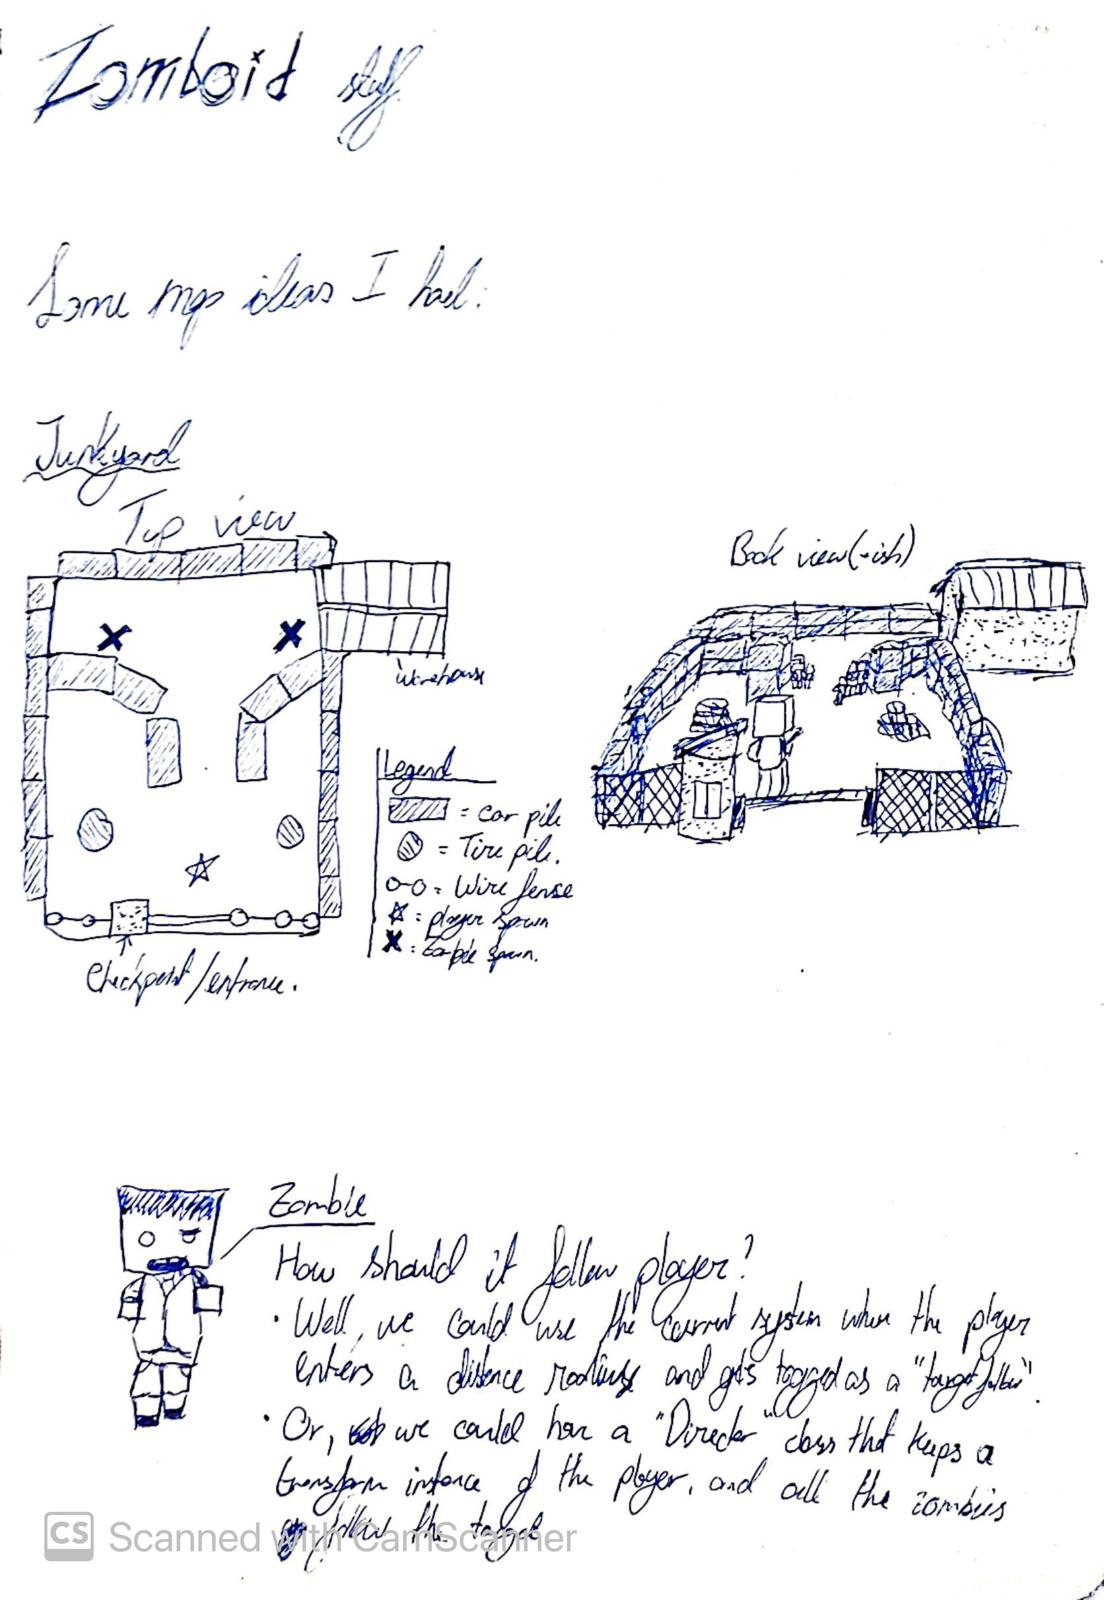 Zomboid stuff
Some map ideas I had:
Junkyard
Top view
Back view(-ish)
Warehouse
Legend
= Car pile
= Tire pile.
= Wire fense
= player spawn
= Zombie spawn.
Checkpoint/entrance.
Zombie
How should it follow player?
• Well, we could use the current system where the player
enters a distence radiuse and gets tagged as a "target follow".
• Or, we could have a "Director" class that keeps a
transform instance of the player, and all the zombies
follow the target
CS Scanned with CamScanner